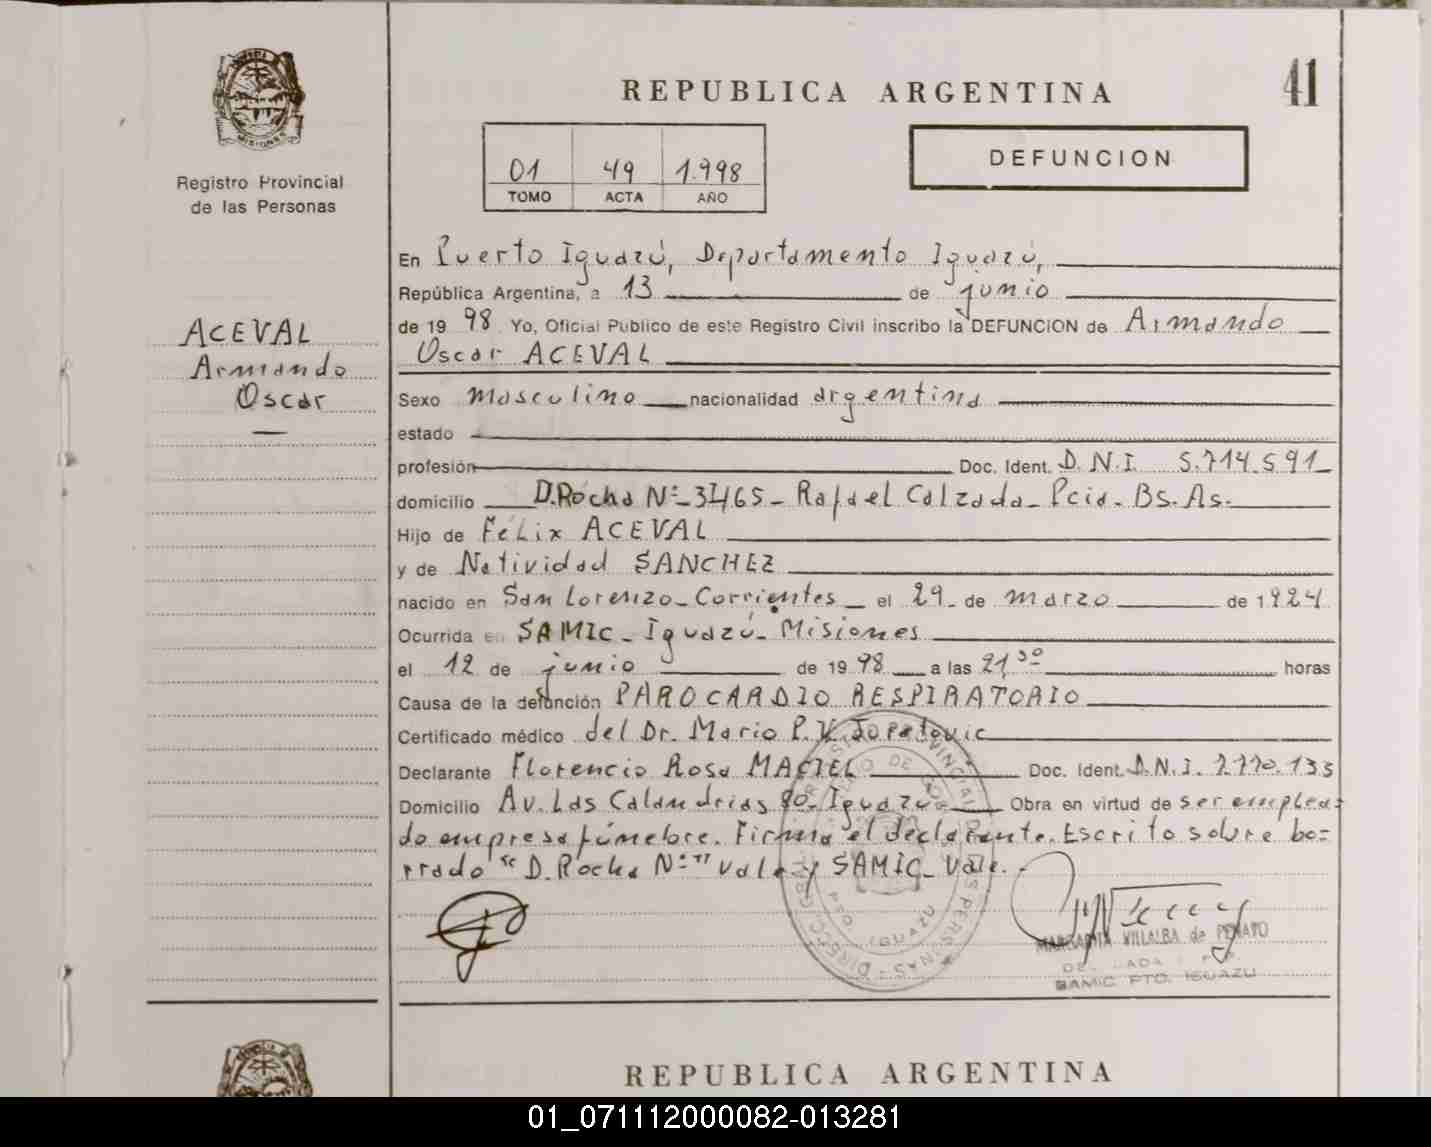 REPUBLICA ARGENTINA
41
MISIONES
Registro Provincial
de las Personas
01 49 1.998
TOMO ACTA AÑO
DEFUNCION
ACEVAL
Armando
Oscar
En Puerto Iguazú, Departamento Iguazú,
República Argentina, a 13 de junio
de 1998 Yo, Oficial Público de este Registro Civil inscribo la DEFUNCION de Armando
Oscar ACEVAL
Sexo masculino nacionalidad argentina
estado
profesión Doc. Ident. D.N.I. 5.714.591
domicilio D.Rocha Nº-3465- Rafael Calzada- Pcia. Bs.As.
Hijo de Félix ACEVAL
y de Natividad SANCHEZ
nacido en San Lorenzo-Corrientes- el 29- de marzo de 1924
Ocurrida en SAMIC- Iguazú- Misiones
el 12 de junio de 1998 a las 21,30 horas
Causa de la defunción PAROCARDIO RESPIRATORIO
Certificado médico del Dr. Mario P.
Declarante Florencio Rosa MACIEL Doc. Ident. D.N.I.
Domicilio Av. Las Calandrias 90- Iguazú- Obra en virtud de ser emplea-
do empresa fúnebre. Firma el declarante. Escrito sobre bo=
rrado "D. Rocha Nº" vale y SAMIC- Vale.
MARGARITA VILLALBA de PENAYO
SAMIC PTO. IGUAZU
REPUBLICA ARGENTINA
01_071112000082-013281